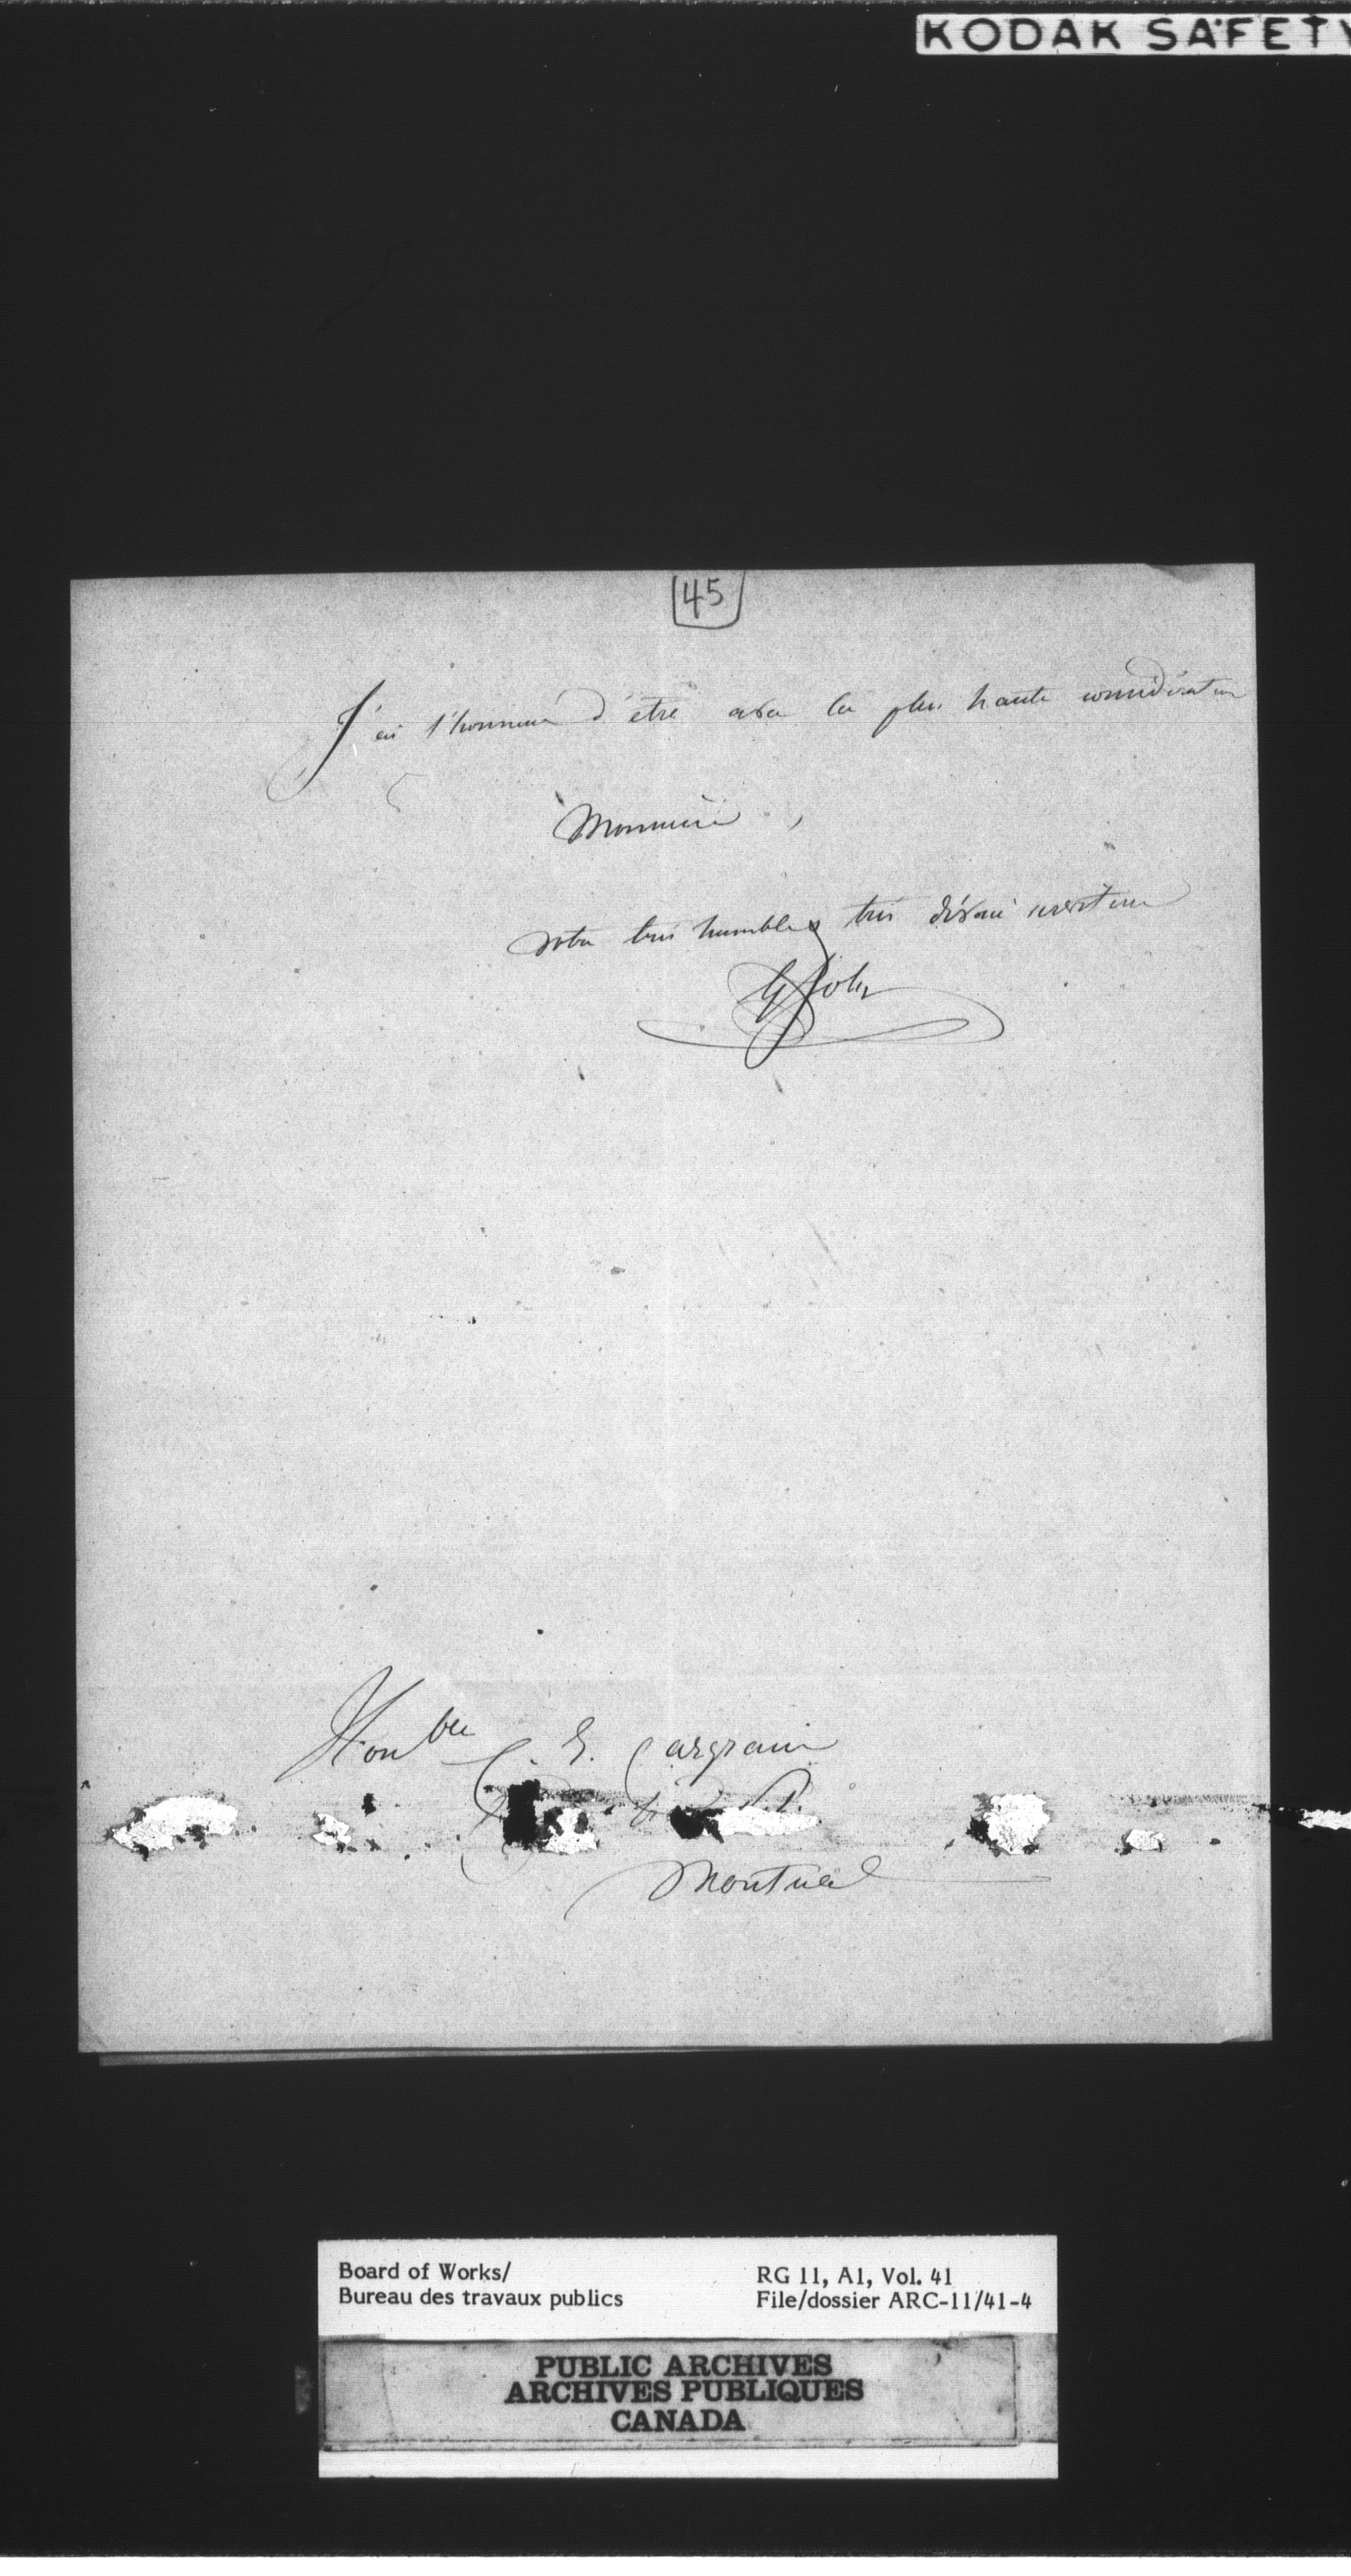 KODAK SAFETY
45
J'ai l'honneur d'être avec la plus haute considération
Monsieur,
votre très humble & très dévoué serviteur
G Joly
Honble C. E. Casgrain
Montreal
Board of Works/
Bureau des travaux publics
RG 11, A1, Vol. 41
File/dossier ARC-11/41-4
PUBLIC ARCHIVES
ARCHIVES PUBLIQUES
CANADA